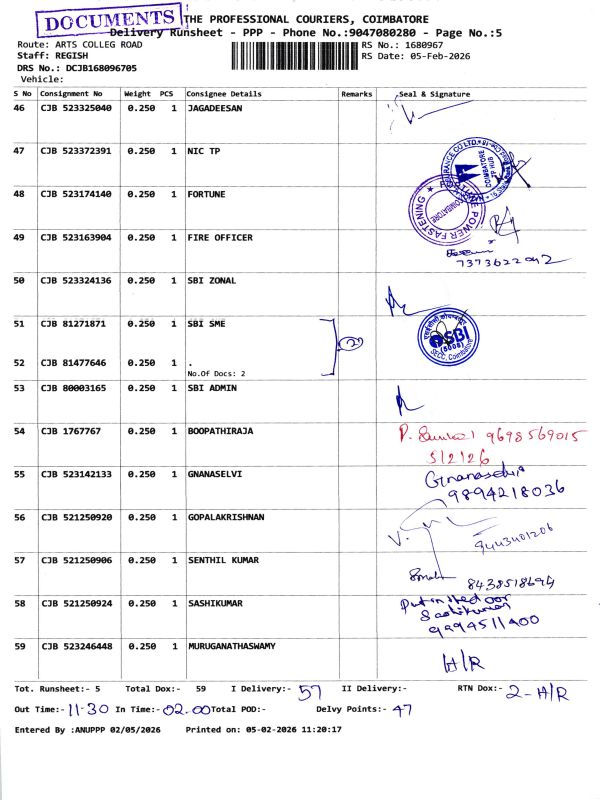 DOCUMENTS
THE PROFESSIONAL COURIERS, COIMBATORE
Delivery Runsheet - PPP - Phone No.:9047080280 - Page No.:5
Route: ARTS COLLEG ROAD RS No.: 1680967
Staff: REGISH RS Date: 05-Feb-2026
DRS No.: DCJB168096705
Vehicle:
S No Consignment No Weight PCS Consignee Details Remarks Seal & Signature
46 CJB 523325040 0.250 1 JAGADEESAN
47 CJB 523372391 0.250 1 NIC TP
48 CJB 523174140 0.250 1 FORTUNE
POWER FASTENING
COIMBATORE
49 CJB 523163904 0.250 1 FIRE OFFICER
7373622092
50 CJB 523324136 0.250 1 SBI ZONAL
51 CJB 81271871 0.250 1 SBI SME
2
SBI
SECC, Coimbatore
52 CJB 81477646 0.250 1 .
No.Of Docs: 2
53 CJB 80003165 0.250 1 SBI ADMIN
54 CJB 1767767 0.250 1 BOOPATHIRAJA
9698569015
5/2/26
55 CJB 523142133 0.250 1 GNANASELVI
Gnanaselvi
9894218036
56 CJB 521250920 0.250 1 GOPALAKRISHNAN
9443401206
57 CJB 521250906 0.250 1 SENTHIL KUMAR
8438518694
58 CJB 521250924 0.250 1 SASHIKUMAR
Sashikumar
9994511400
59 CJB 523246448 0.250 1 MURUGANATHASWAMY
H/R
Tot. Runsheet:- 5 Total Dox:- 59 I Delivery:- 57 II Delivery:- RTN Dox:- 2-H/R
Out Time:- 11-30 In Time:- 02.00 Total POD:- Delvy Points:- 47
Entered By :ANUPPP 02/05/2026 Printed on: 05-02-2026 11:20:17